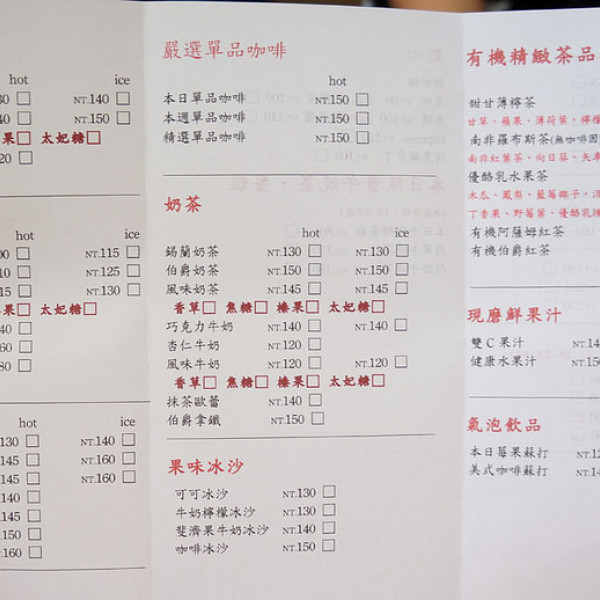 hot ice
30 □ NT.140 □
40 □ NT.150 □
果□ 太妃糖□
20 □
hot ice
00 □ NT.115 □
10 □ NT.125 □
15 □ NT.130 □
果□ 太妃糖□
40 □
60 □
80 □
hot ice
130 □ NT.140 □
145 □ NT.160 □
145 □ NT.160 □
140 □
145 □
150 □
160 □
嚴選單品咖啡
hot
本日單品咖啡 NT.150 □
本週單品咖啡 NT.150 □
精選單品咖啡 NT.150 □
奶茶
hot ice
錫蘭奶茶 NT.130 □ NT.130 □
伯爵奶茶 NT.150 □ NT.150 □
風味奶茶 NT.145 □ NT.145 □
香草□ 焦糖□ 榛果□ 太妃糖□
巧克力牛奶 NT.140 □ NT.140 □
杏仁牛奶 NT.120 □
風味牛奶 NT.120 □ NT.120 □
香草□ 焦糖□ 榛果□ 太妃糖□
抹茶歐蕾 NT.140 □
伯爵拿鐵 NT.150 □
果味冰沙
可可冰沙 NT.130 □
牛奶檸檬冰沙 NT.130 □
斐濟果牛奶冰沙 NT.140 □
咖啡冰沙 NT.150 □
有機精緻茶品
甜甘薄檸茶
甘草、蘋果、薄荷葉、檸檬
南非羅布斯茶(無咖啡因)
南非紅葉茶、向日葵、矢車
優酪乳水果茶
木瓜、鳳梨、藍莓椰子、
丁香果、野莓葉、優酪乳
有機阿薩姆紅茶
有機伯爵紅茶
現磨鮮果汁
雙C果汁 NT.14
健康水果汁 NT.15
氣泡飲品
本日莓果蘇打 NT.12
美式咖啡蘇打 NT.14